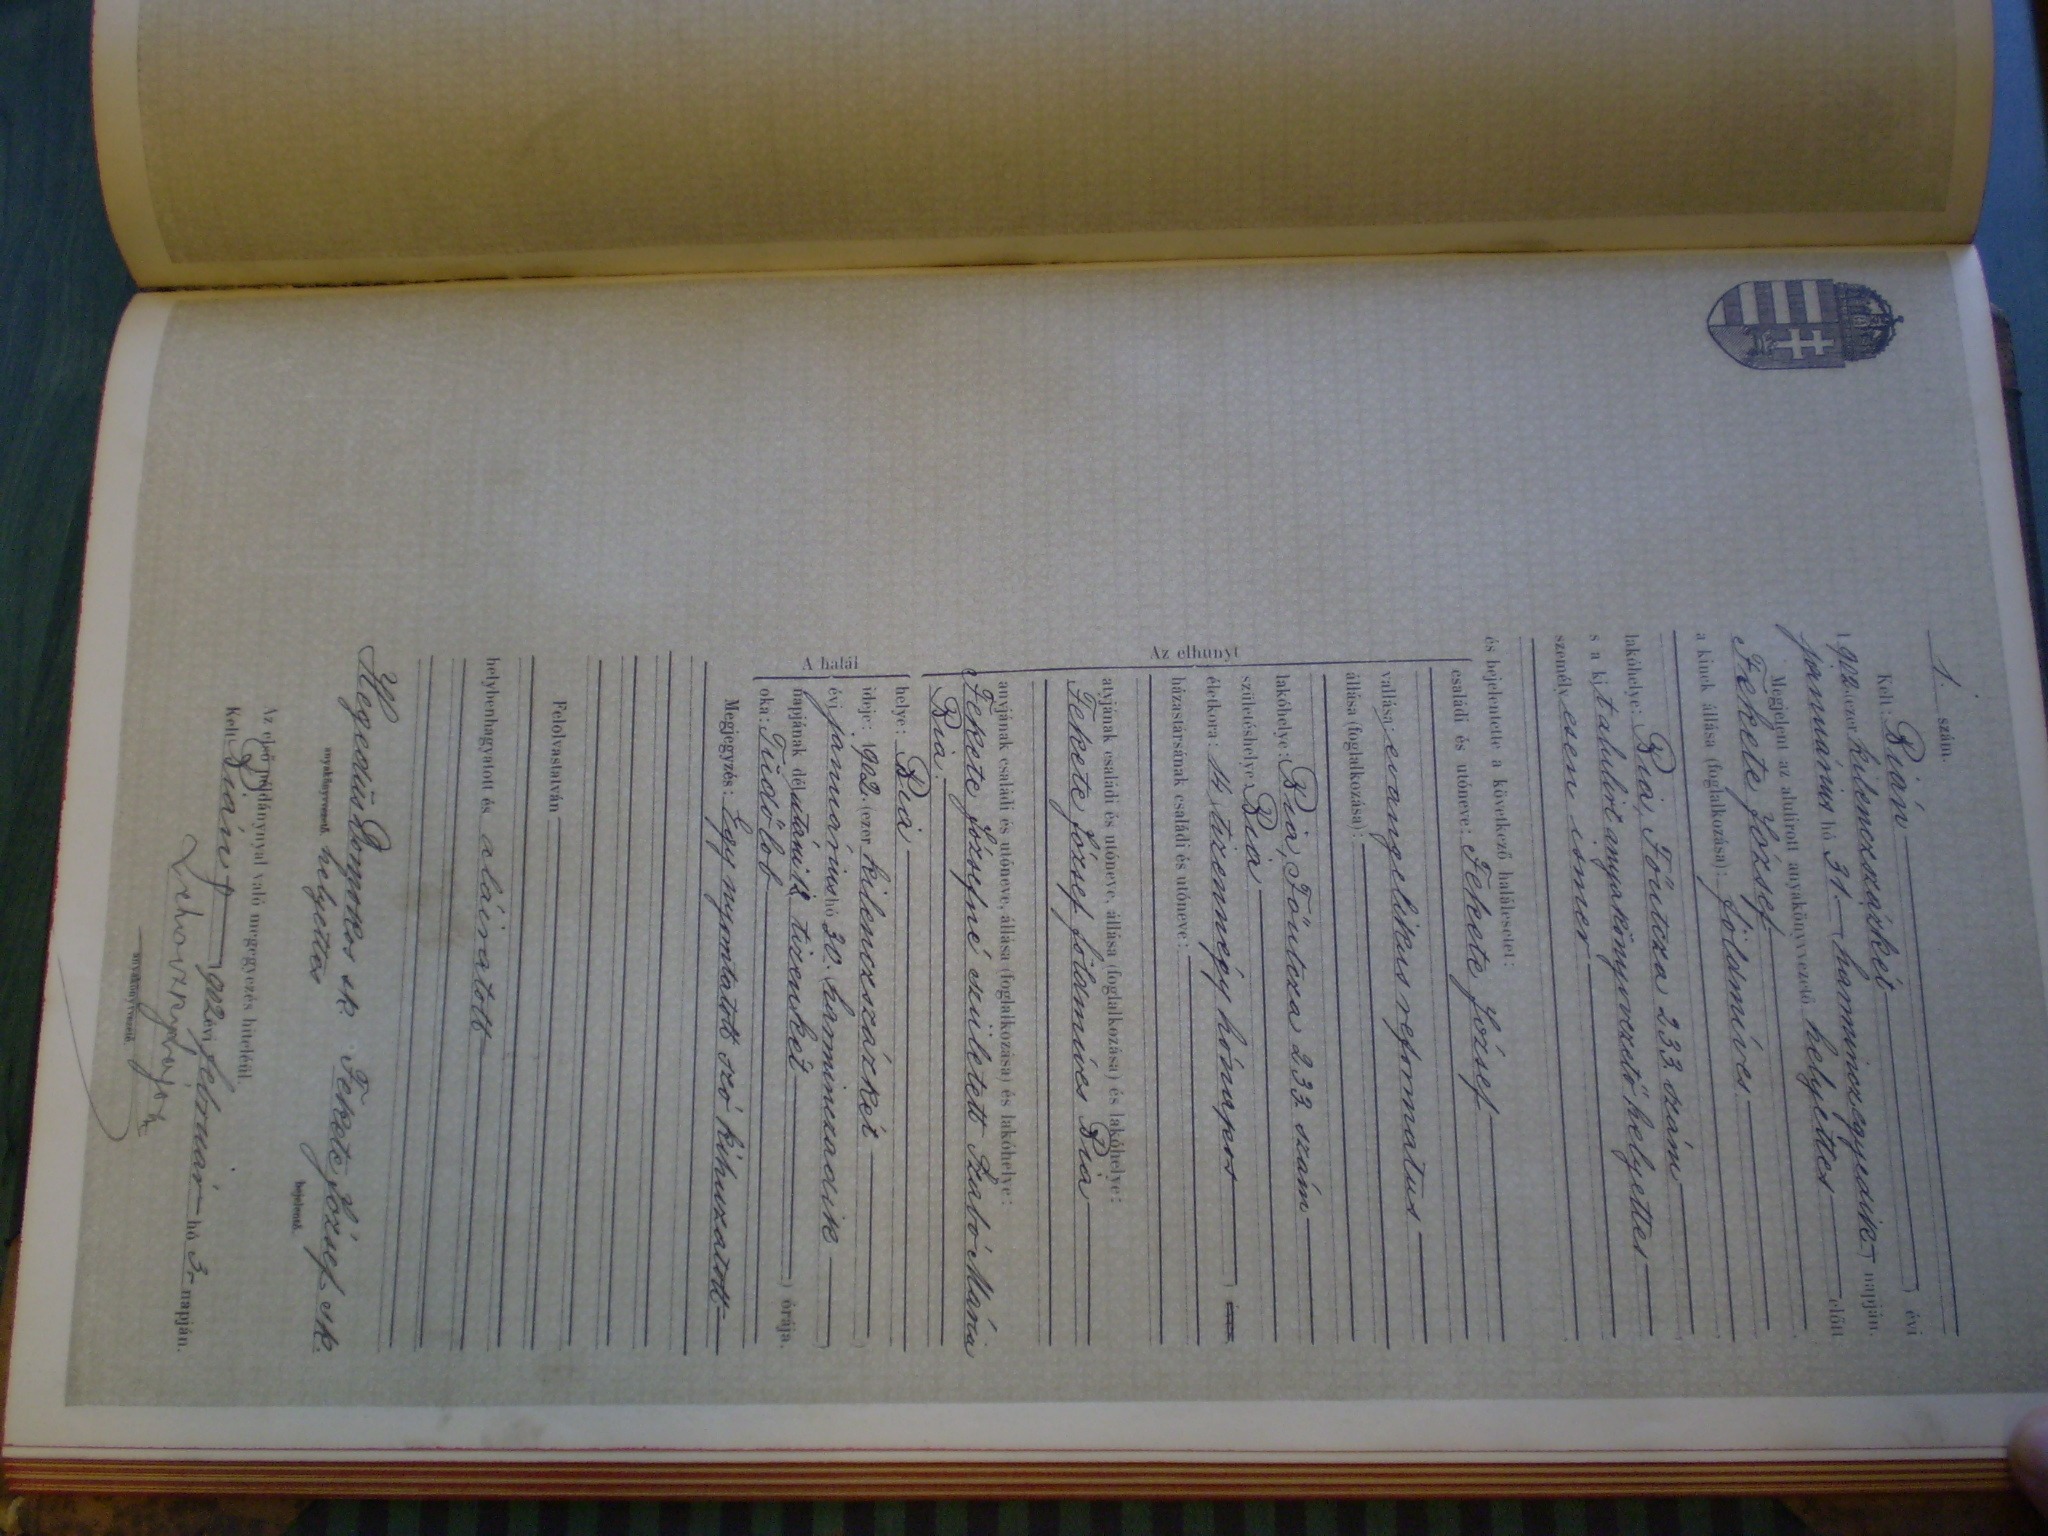 1. szám.
Kelt: Bián ) évi
1902. (ezer kilenczszázkét
januárius hó 31 (harminczegyedik) napján.
Megjelent az alulirott anyakönyvvezető helyettes előtt
Fekete József
a kinek állása (foglalkozása): földmíves
lakóhelye: Bia, Főutcza 233. szám
s a kit alulírt anyakönyvvezető helyettes
személyesen ismer
és bejelentette a következő halálesetet:
Az elhunyt
családi és utóneve: Fekete József
vallása: evangelikus reformatus
állása (foglalkozása):
lakóhelye: Bia, Főutcza 233. szám
születéshelye Bia
életkora: 14 (tizennégy hónapos ) éves
házastársának családi és utóneve:
atyjának családi és utóneve, állása (foglalkozása) és lakóhelye:
Fekete József földmíves Bia
anyjának családi és utóneve, állása (foglalkozása) és lakóhelye:
Fekete Józsefné született Szabó Mária
Bia.
A halál
helye: Bia
ideje: 1902. (ezer kilenczszázkét )
évi januárius hó 30. (harminczadik )
napjának délutáni 12 tizenkét ) órája.
oka: Tüdőlob
Megjegyzés: Egy nyomtatott szó kihuzatott
Felolvastatván
helybenhagyatott és aláiratott
Hegedüs Domokos sk. Fekete József sk.
anyakönyvvezető. helyettes bejelentő.
Az első példánynyal való megegyezés hiteléül
Kelt Bián 902 évi február hó 3. napján.
anyakönyvvezető.